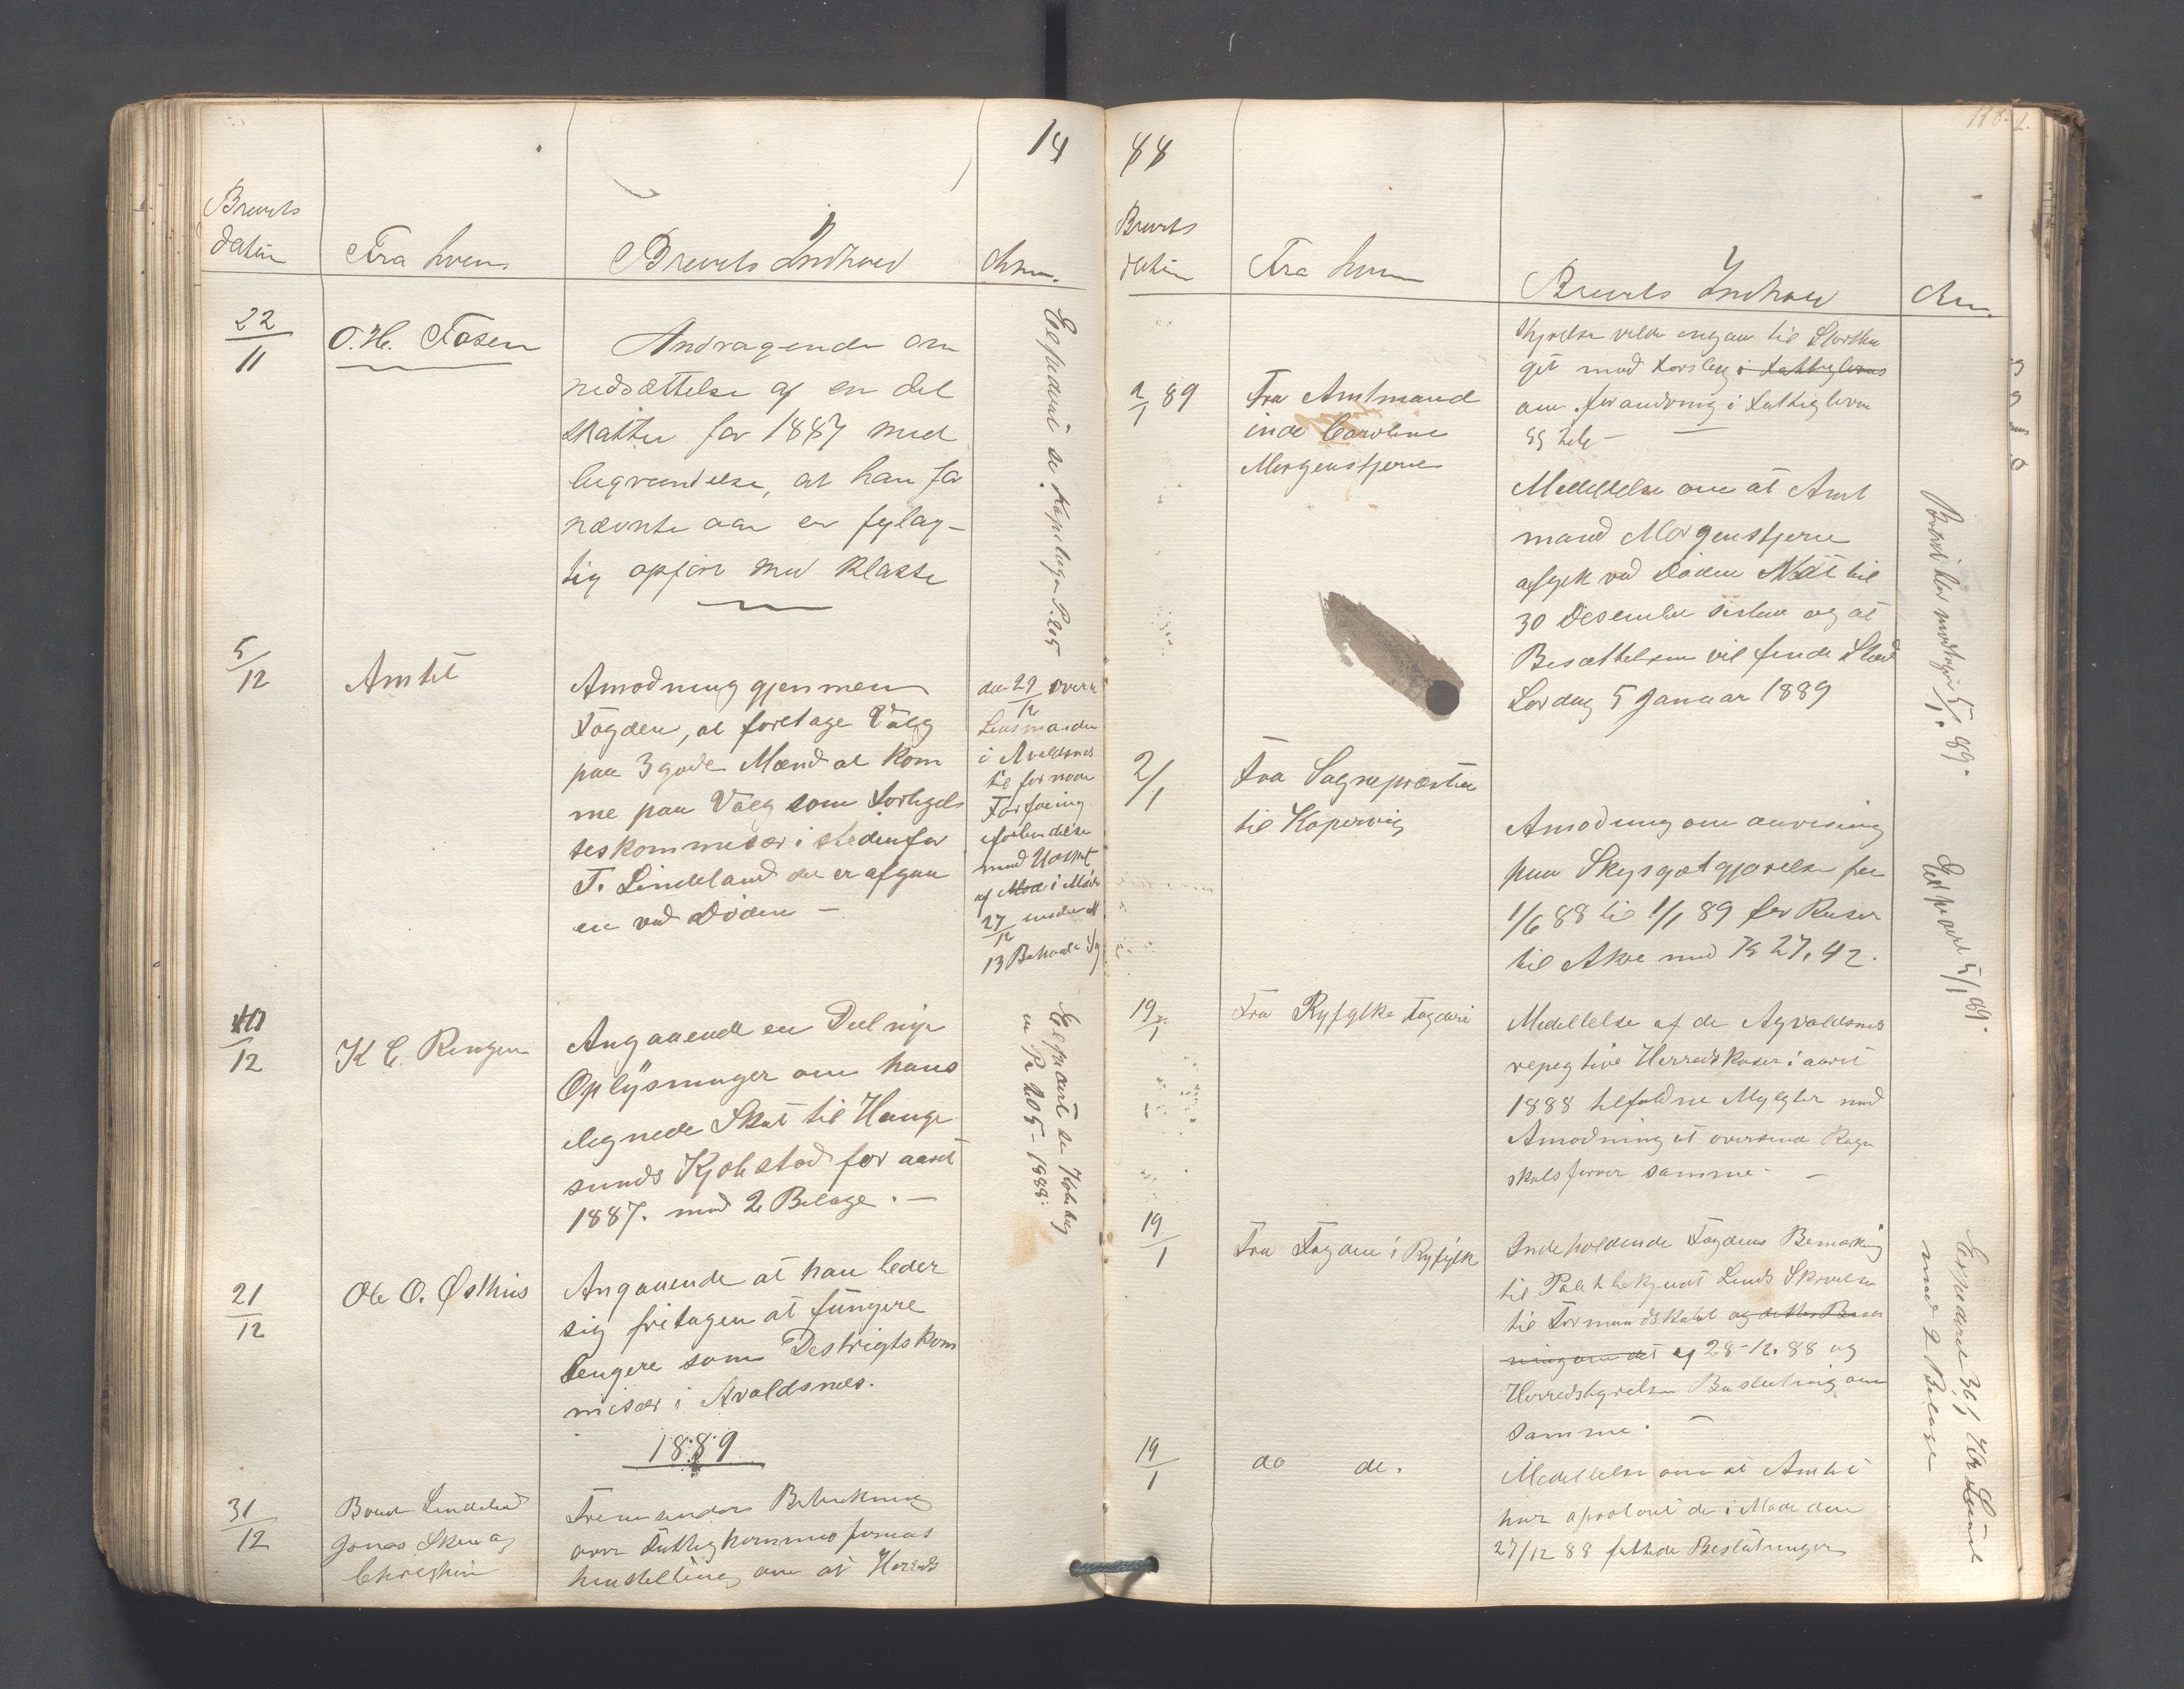 18
Brevets
datum
Fra hvem
Brevets Indhold
Anm.
22/11
O. H. Fosen
Andragende om
nedsættelse af en del
skatter for 1887 med
begrundelse, at han for
nævnte aar er feilag-
tig opført med klasse
Expederet se Kopibogen P. 205
5/12
Amtet
Amodning gjennem
Fogden, at foretage Valg
paa 3 gode Mænd at kom
me paa Valg som Forligels
seskommisær i stedenfor
T. Lindeland der er afgaa
en ved Døden -
den 29/12 over
Lensmanden
i Avaldsnes
til fornøden
Forføining
iforbindelse
med Udskrift
af Møde i
27/12 under N
13 Behandl. Sag
10/12
K C. Ringen
Angaaende en Deel nye
Oplysninger om hans
ilegnede Skat til Hauge
sunds Kjøbstad for aaret
1887. med 2 Belage. -
Expedert se Kobibog
P 205 - 1888.
21/12
Ole O. Østhus
Angaaende at han beder
sig fritagen at fungere
lengere som Destrigtskom
misær i Avaldsnes.
1889
31/12
Lindeland
Jonas Skeie og
Christian
Fremsender Betenkning
over Fattigkommissjonens
henstilling om at Herreds
88
Brevets
datum
Fra hvem
Brevets Indhold
Anm.
styrelse vilde engaa til Storthin
get med Forslag i Fattigloven
om forandring i Fattigloven
2/1 89
Fra Amtmand
inde Caroline
Morgenstjerne
Meddelelse om at Amt
mand Morgenstjerne
afgik ved døden Nat til
30 Desember sistau og at
Besættelsen vil finde Sted
Lørdag 5 Januar 1889
5/1. 89.
2/1
Fra Sognepræsten
til Kopervig
Amodning om anvisning
paa Skysgotgjørelse fra
1/6 88 til 1/1 89 for Reiser
til Akre med Kr 27,42.
Exspedert 5/1 89.
19/1
Fra Ryfylke Fogderi
Meddelelse af de Agvaldsnes
repegtive Herredskaser i aaret
1888 tilfaldne Mulgter med
Amodning at oversende Regn
skabsfører samme -
19/1
Fra Fogden i Ryfylke
Indeholdende Fogdens Bemærkning
til Lunds Skrivelse
til Formandskabet og dettes Beser
ning om det af 28-12. 88 og
Herredstyrelsen Beslutning om
samme. -
Exspederet 30/1
med 2 Belage
19/1
do do.
Meddelelse om at Amtet
har aproberet de i Møde den
27/12 88 fattede Beslutninger